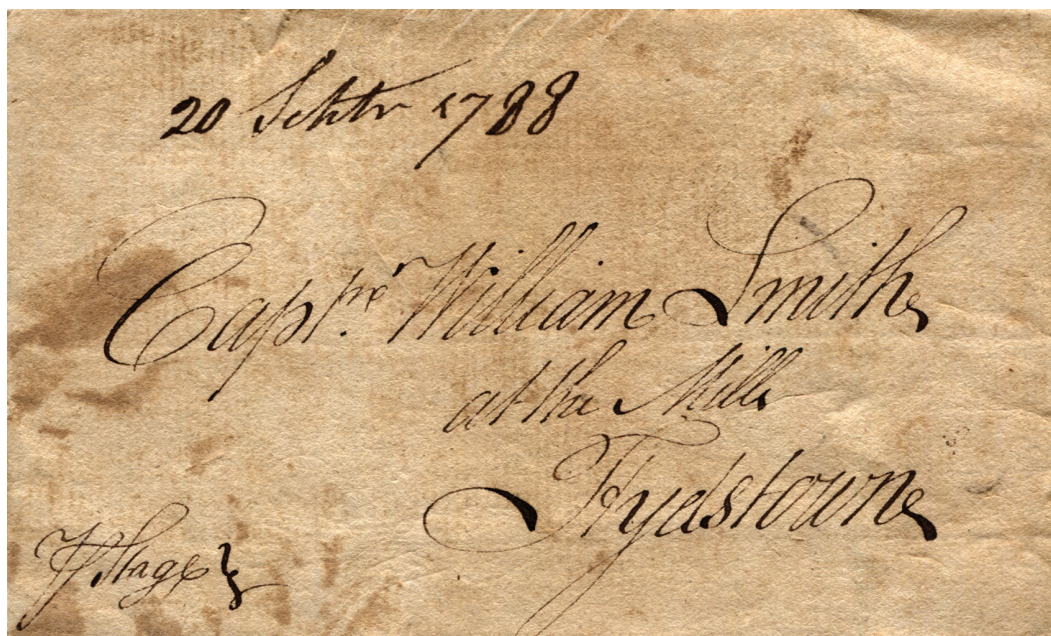 20 1788
Captn. William Smith
at the Mills
Hydstown
Stage